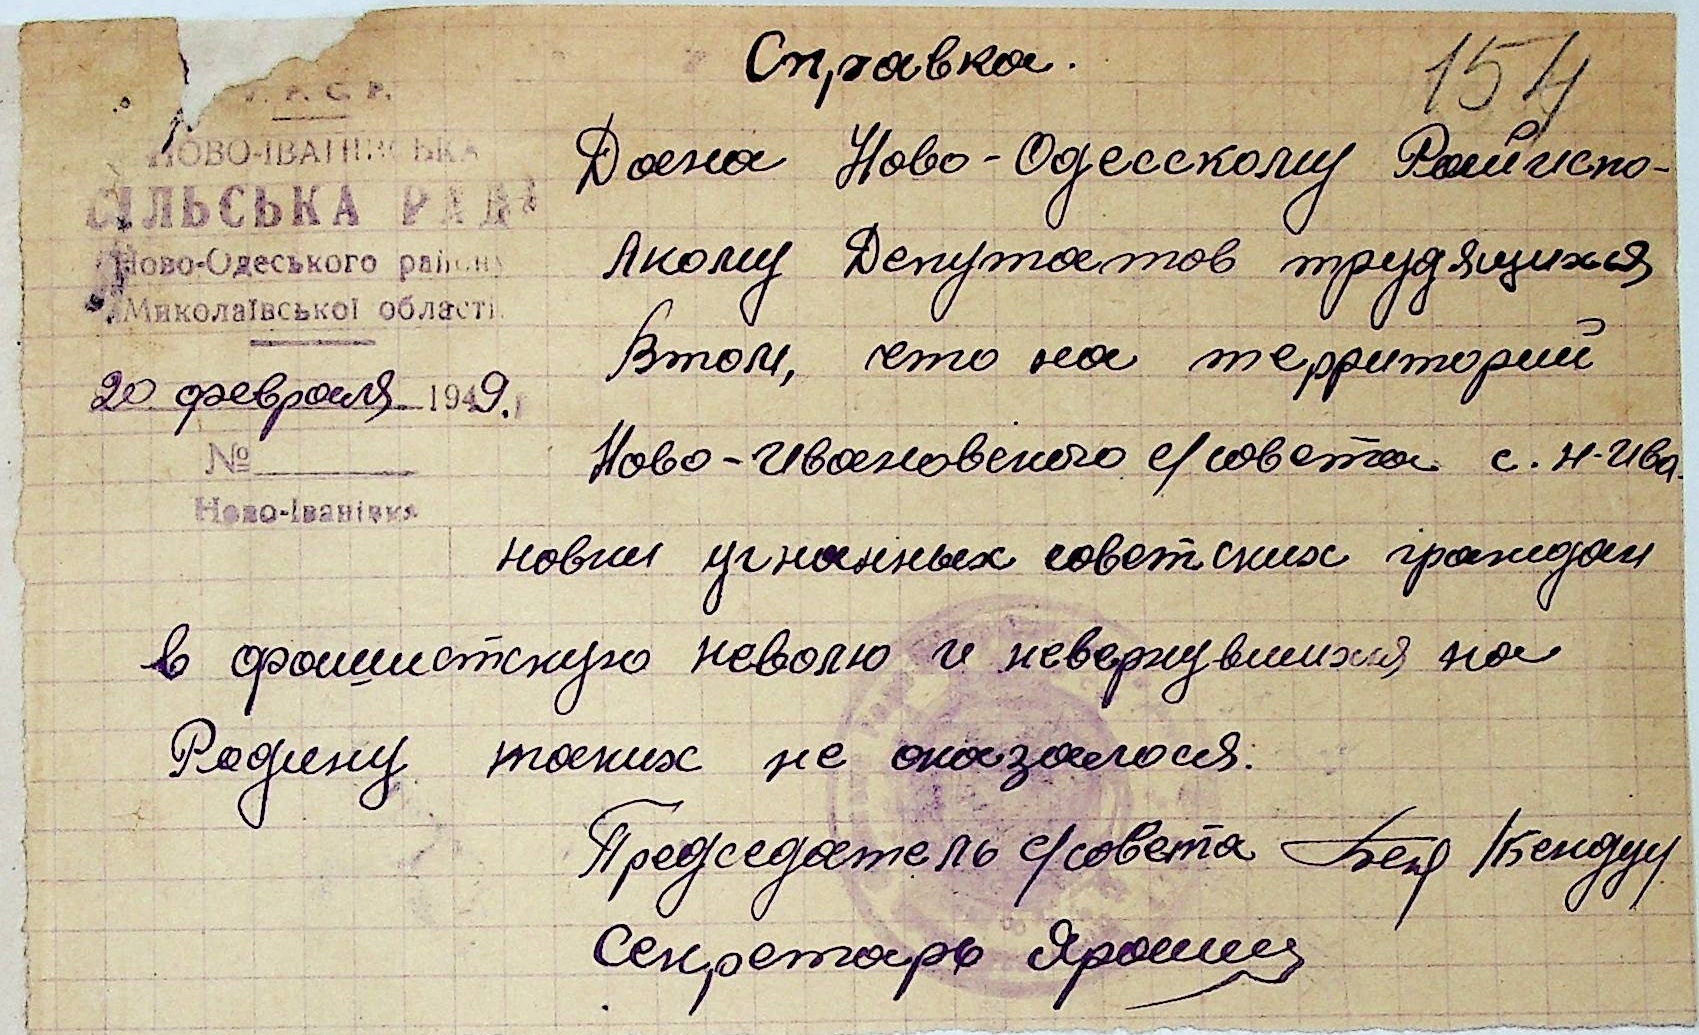 Справка.
154
У.Р.С.Р.
НОВО-ІВАНІВСЬКА
СІЛЬСЬКА РАДА
Ново-Одеського району
Миколаївської області
20 февраля 1949.
№
Ново-Іванівка
Даена Ново-Одесскому Райиспо-
лкому Депутатов трудящихся
Втом, что на территорий
Ново-Ивановского с/совета с. Н-Ива-
новки угнанных советских граждан
в фашистскую неволю и невернувшихся на
Родину таких не оказалося.
Председатель с/совета /Кендзу/
Секретарь